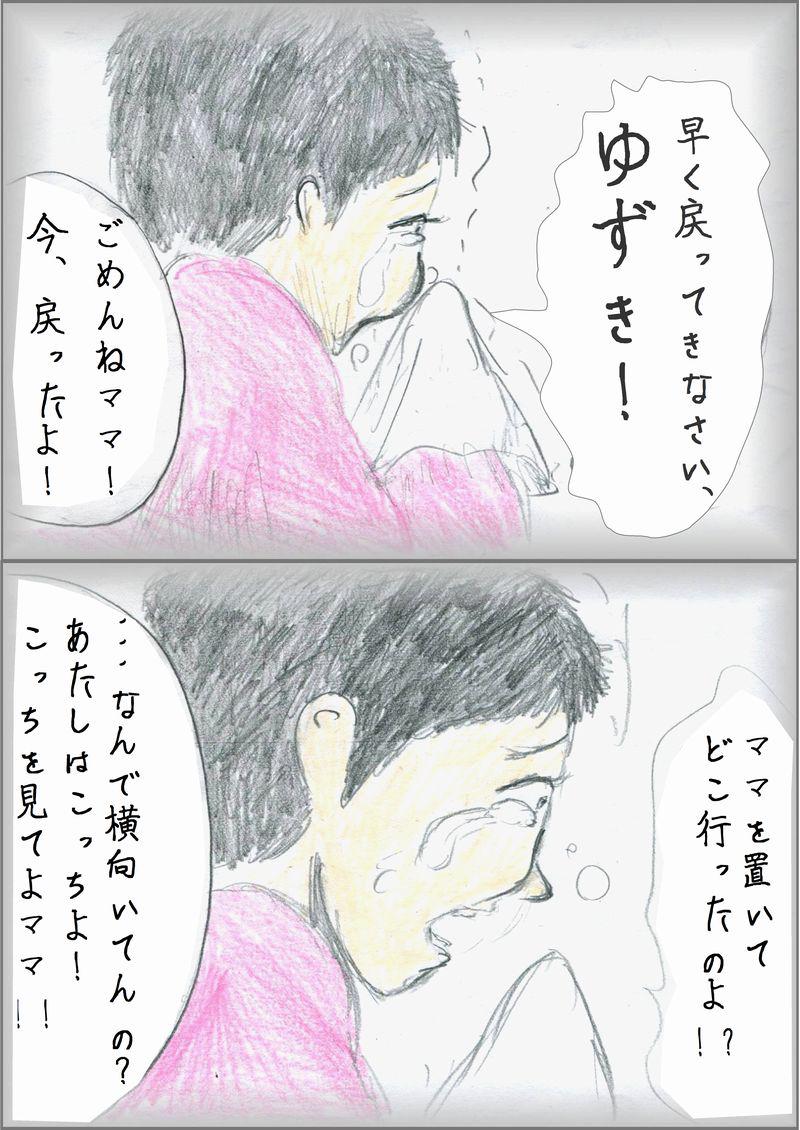 早く戻ってきなさい、
ゆずき！
ごめんねママ！
今、戻ったよ！
ママを置いて
どこ行ったのよ！？
…なんで横向いてんの？
あたしはこっちよ！
こっちを見てよママ！！